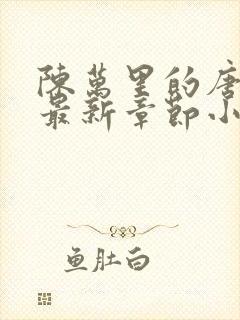 陳萬里的唐
最新章節小
鱼肚白